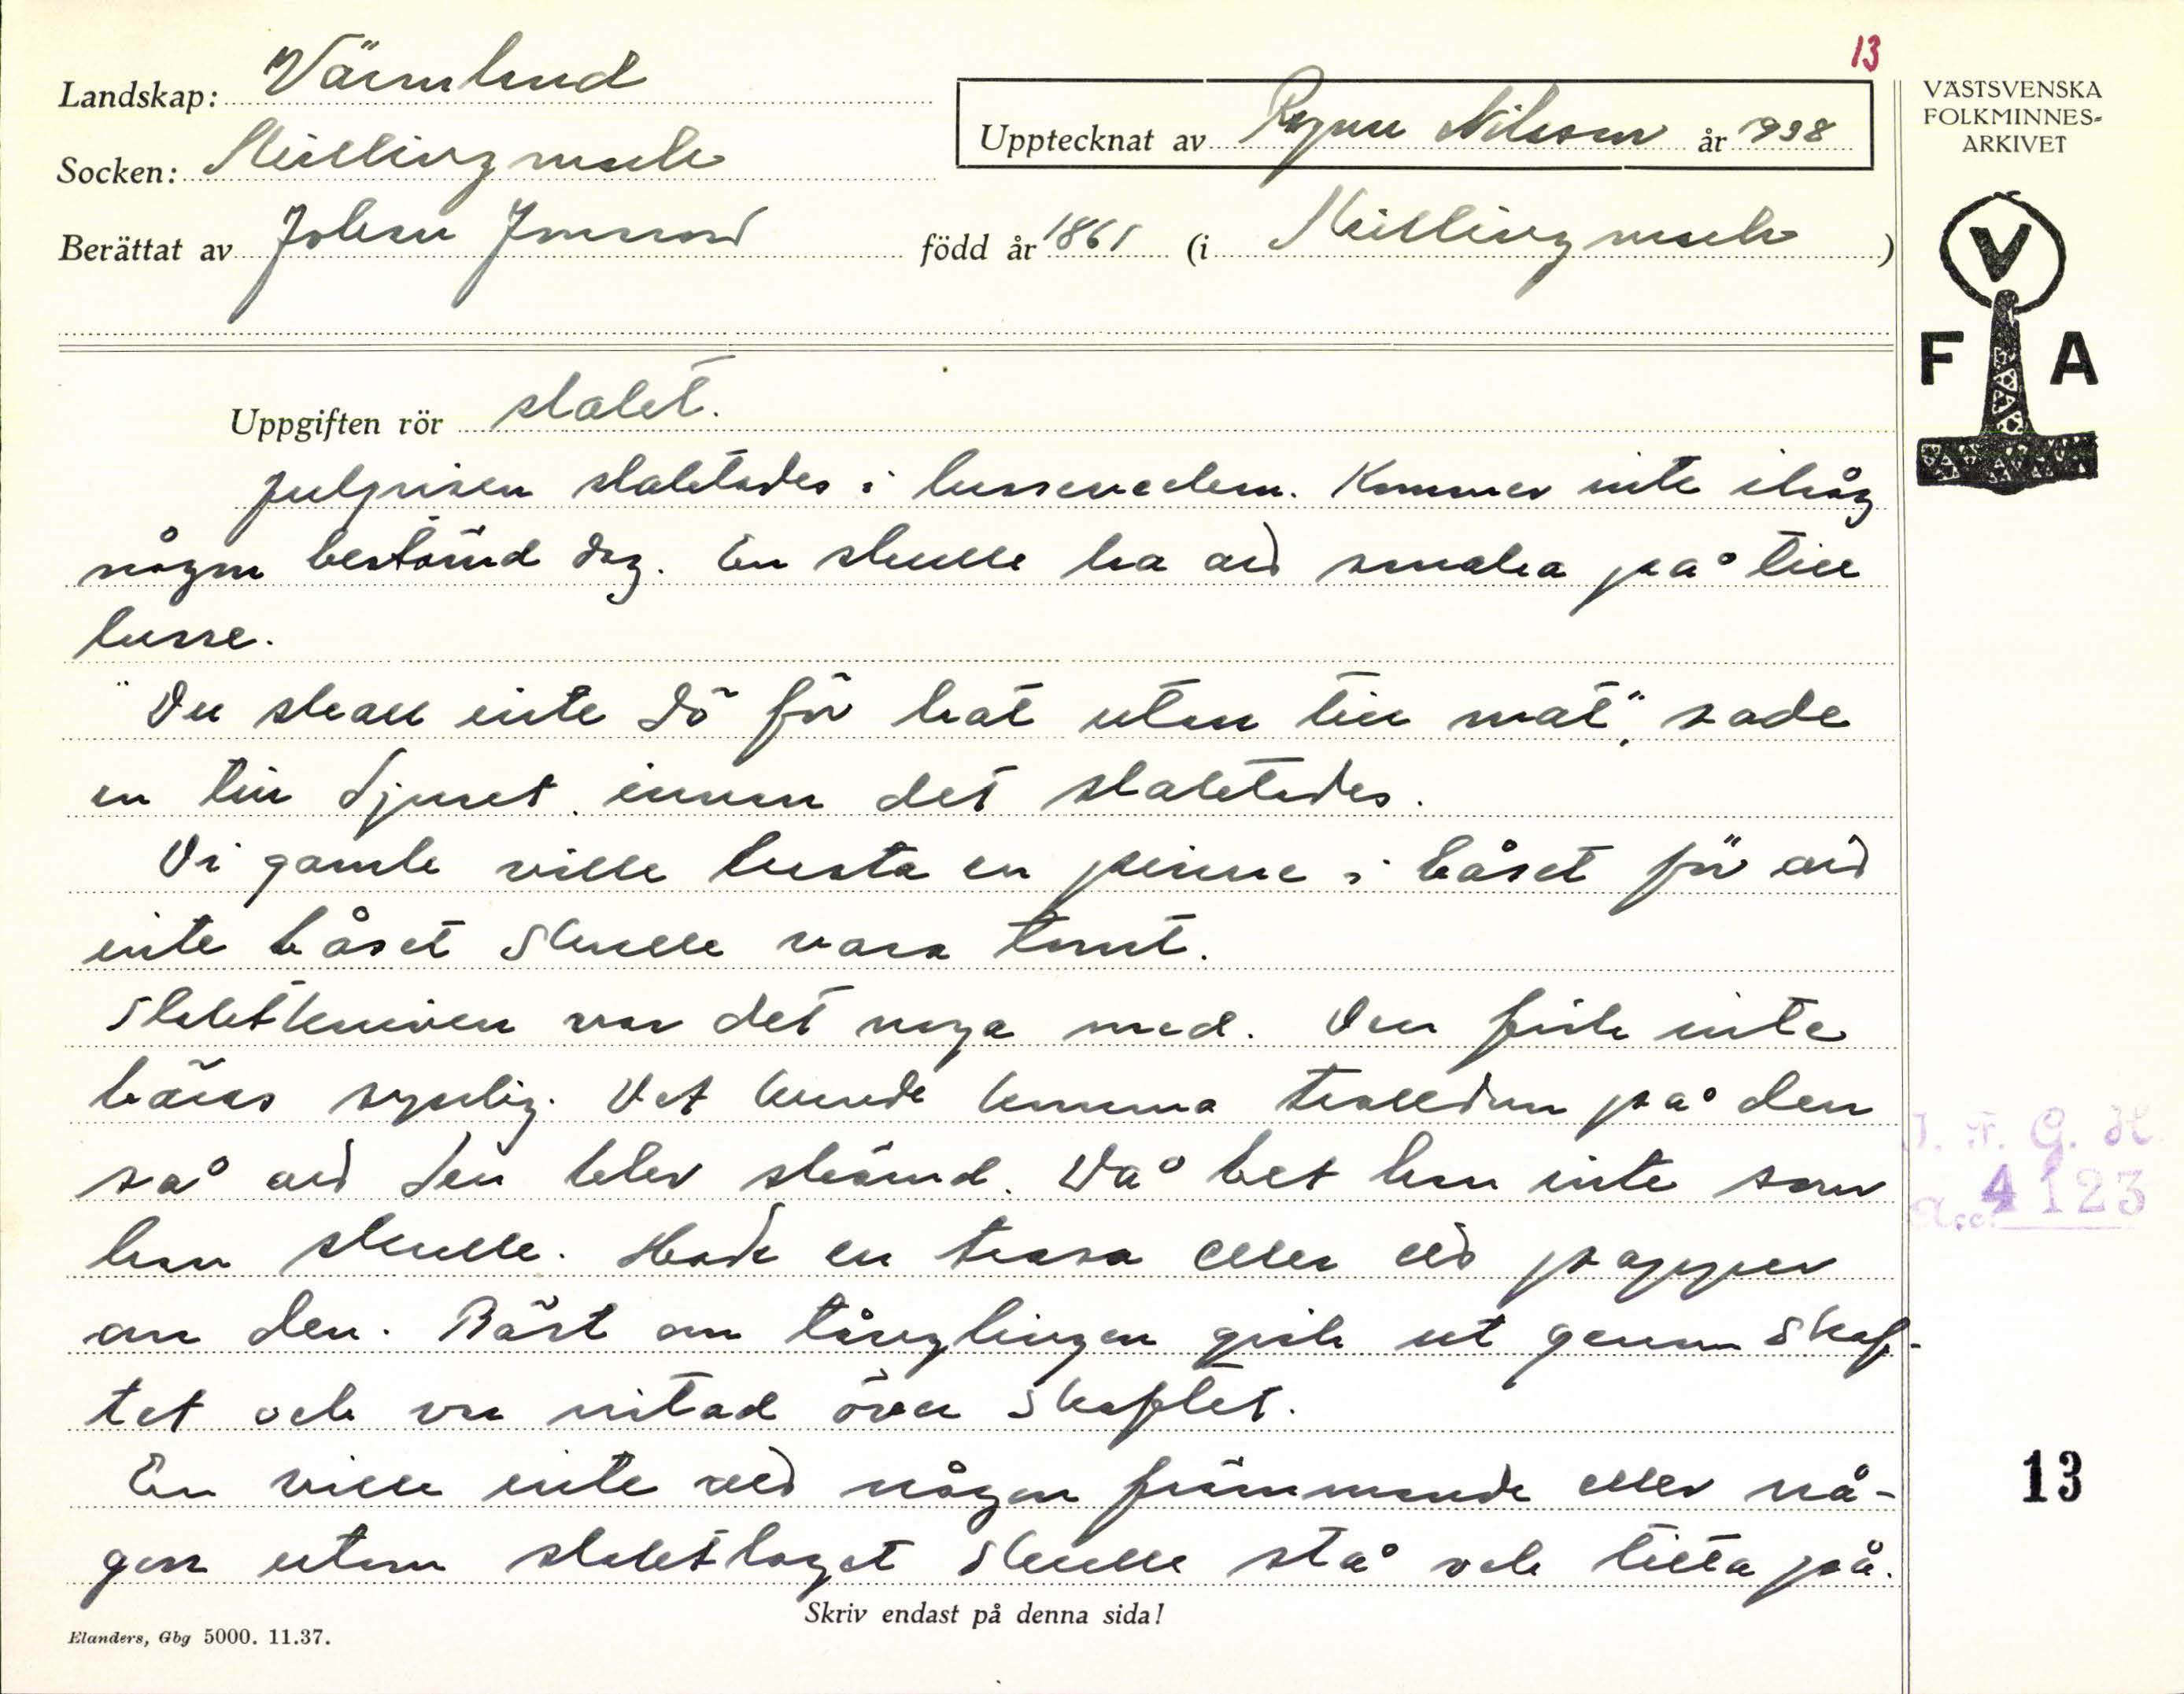 13
Landskap: Värmland
Socken: Skillingmark
Upptecknat av Ragnar Nilsson år 1938
Berättat av Johan Jonsson född år 1861 (i Skillingmark)
VÄSTSVENSKA
FOLKMINNES-
ARKIVET
V
F A
Uppgiften rör slakt.
Julgrisen slaktades i lusseveckan. Kommer inte ihåg
någon bestämd dag. En skulle ha att smaka på till
lusse.
"Du skall inte dö för hat utan till mat", sade
en till djuret innan det slaktades.
Di gamle ville kasta en pinne i båset för att
inte båset skulle vara tomt.
Slaktkniven var det noga med. Den fick inte
bäras synlig. Det kunde komma trolldom på den
så att den blev skämd. Då bet han inte som
han skulle. Hade en trasa eller ett papper
om den. Bäst om tånglingen gick ut genom skaf-
tet och va nitad över skaftet.
En ville inte att någon främmande eller nå-
gon utom slaktlaget skulle stå och titta på.
I. F. G. H.
Acc. 4123
13
Skriv endast på denna sida!
Elanders, Gbg 5000. 11.37.